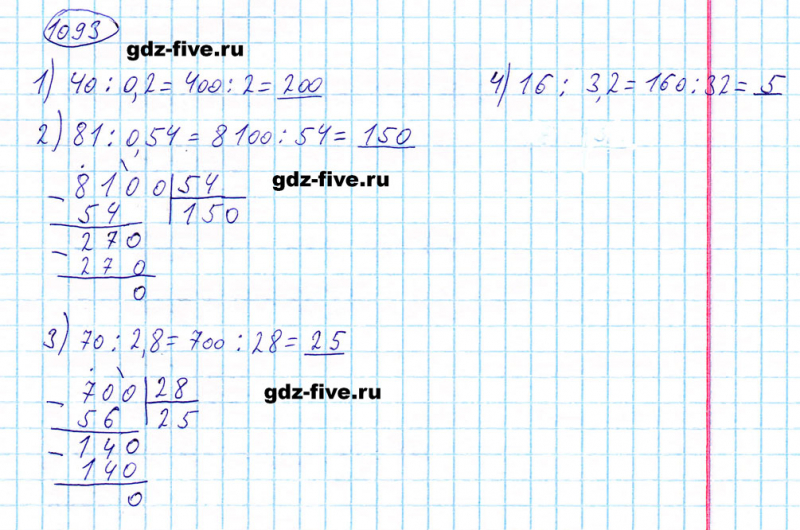 1093
gdz-five.ru
1) 40 : 0,2 = 400 : 2 = 200
4) 16 : 3,2 = 160 : 32 = 5
2) 81 : 0,54 = 8100 : 54 = 150
gdz-five.ru
- 8100 | 54
54 | 150
- 270
270
0
3) 70 : 2,8 = 700 : 28 = 25
gdz-five.ru
- 700 | 28
56 | 25
- 140
140
0